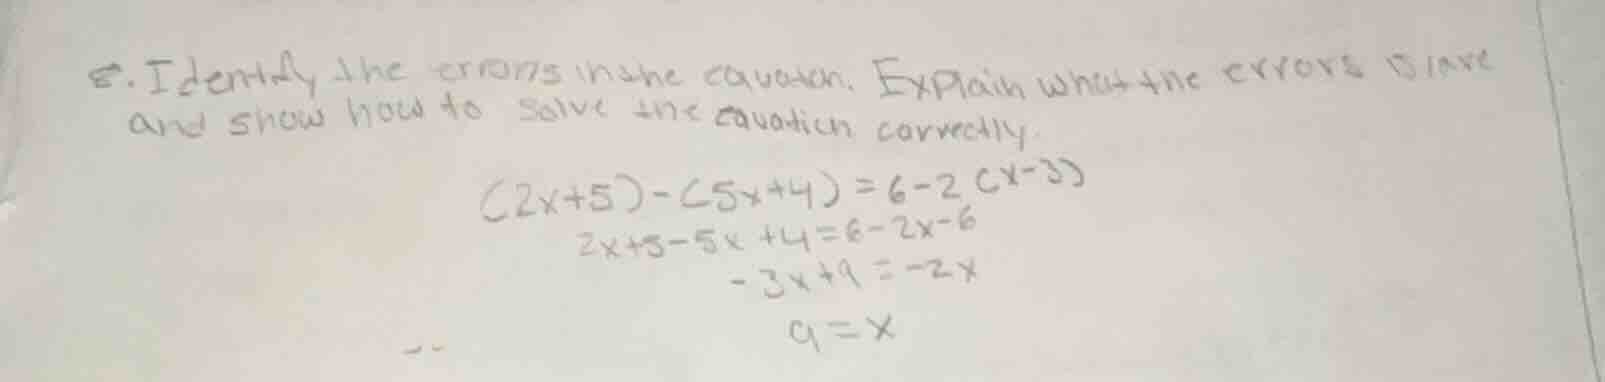 8. Identify the errors in the equation. Explain what the errors is/are
and show how to solve the equation correctly.
(2x+5)-(5x+4)=6-2(x-3)
2x+5-5x+4=6-2x-6
-3x+9=-2x
9=x